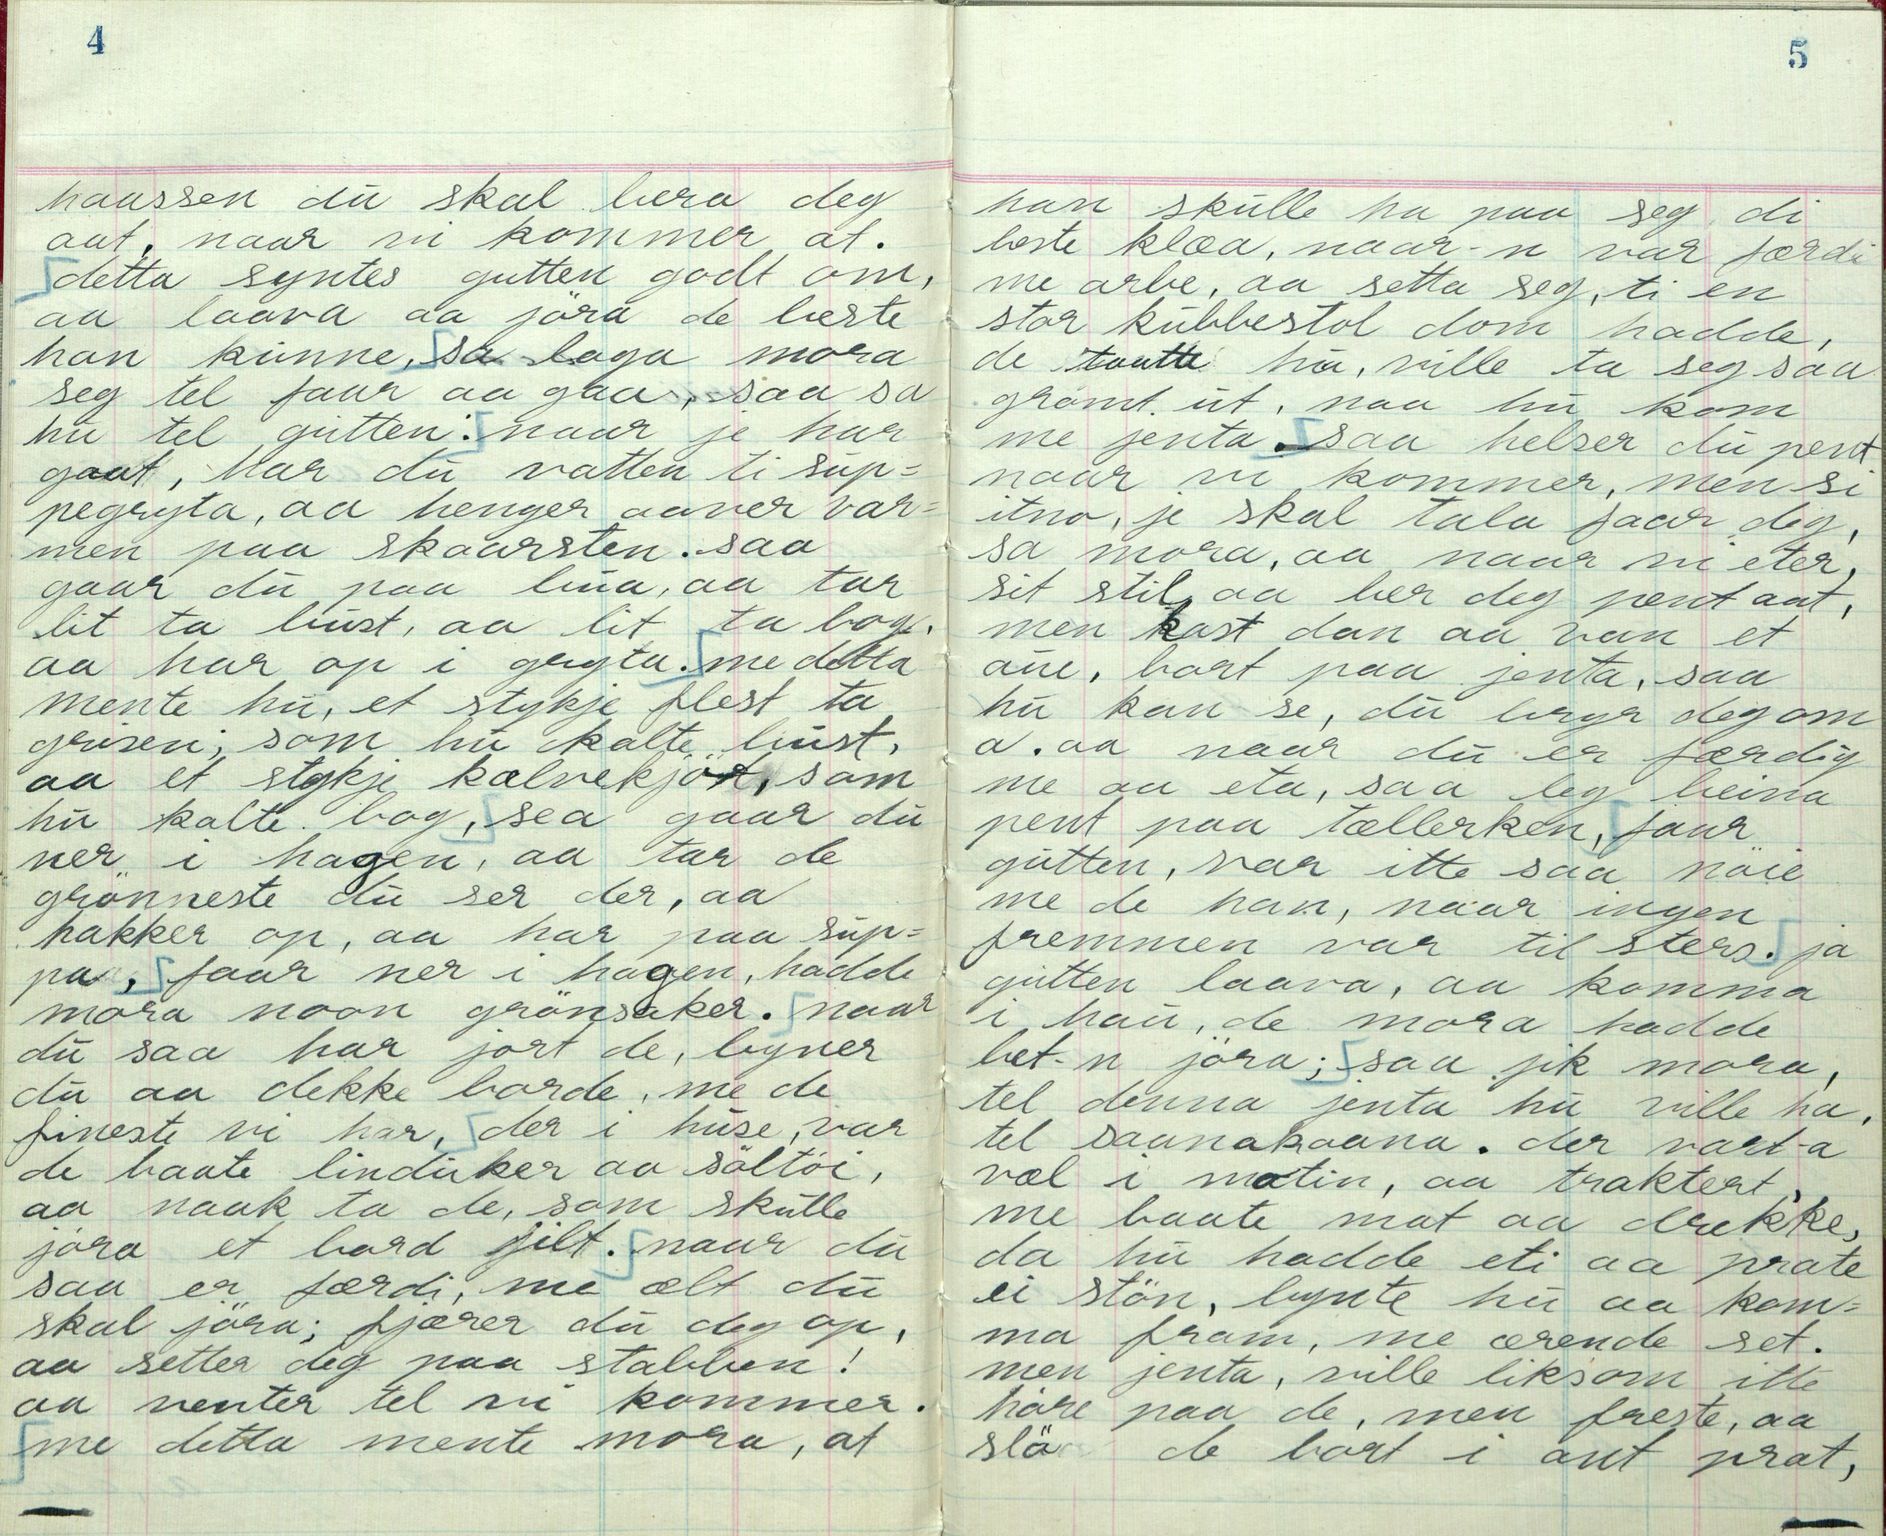 4
haassen du skal bera deg
aat, naar vi kommer at.
detta syntes gutten godt om,
aa laava aa jöra de beste
han kunne, sa laga mora
seg tel faar aa gaa, saa sa
hu tel gutten: naar je har
gaat, har du vatten ti sup=
pegryta, aa henger aaver var=
men paa skaarsten. saa
gaar du paa bua, aa tar
lit ta bust, aa lit ta bog,
aa har op i gryta. me detta
mente hu, et stykje flest ta
grisen; som hu kalte bust,
aa et stykje kælvekjöt, som
hu kalte bog, sea gaar du
ner i hagen, aa tar de
grönneste du ser der, aa
hakker op, aa har paa sup=
pa, faar ner i hagen, hadde
mora noon grönsaker. naar
du saa har jort de, byner
du aa dekke borde, me de
fineste vi har, der i huse, var
de baate linduker aa söltöi,
aa naak ta de, som skulle
jöra et bord jilt. naar du
saa er færdi, me ælt du
skal jöra; fjærer du deg op,
aa setter deg paa stabben!
aa venter tel vi kommer.
me detta mente mora, at
5
han skulle ha paa seg di
beste klæa, naar-n var færdi
me arbe, aa setta seg, ti en
stor kubbestol dom hadde,
de toutte hu, ville ta seg saa
grömt ut, naa hu kom
me jenta. saa helser du pent
naar vi kommer, men si
itno, je skal tala faar deg,
sa mora, aa naar vi eter,
sit stil, aa ber deg pent aat,
men kast dan aa van et
aue, bort paa jenta, saa
hu kan se, du bryr deg om
a. aa naar du er færdig
me aa eta, saa leg beina
pent paa tællerken, faar
gutten, var itte saa nöie
me de han, naar ingen
fremmen var til sters. ja
gutten laava, aa komma
i hau, de mora hadde
bet-n jöra; saa jik mora,
tel denna jenta hu ville ha,
tel saanakaana. der vart-a
væl i motin, aa traktert,
me baate mat aa drekke,
da hu hadde eti aa prate
ei stön, bynte hu aa kom=
ma fram, me ærende set.
men jenta, ville liksom itte
höre paa de, men freste, aa
slö de bort i ant prat,